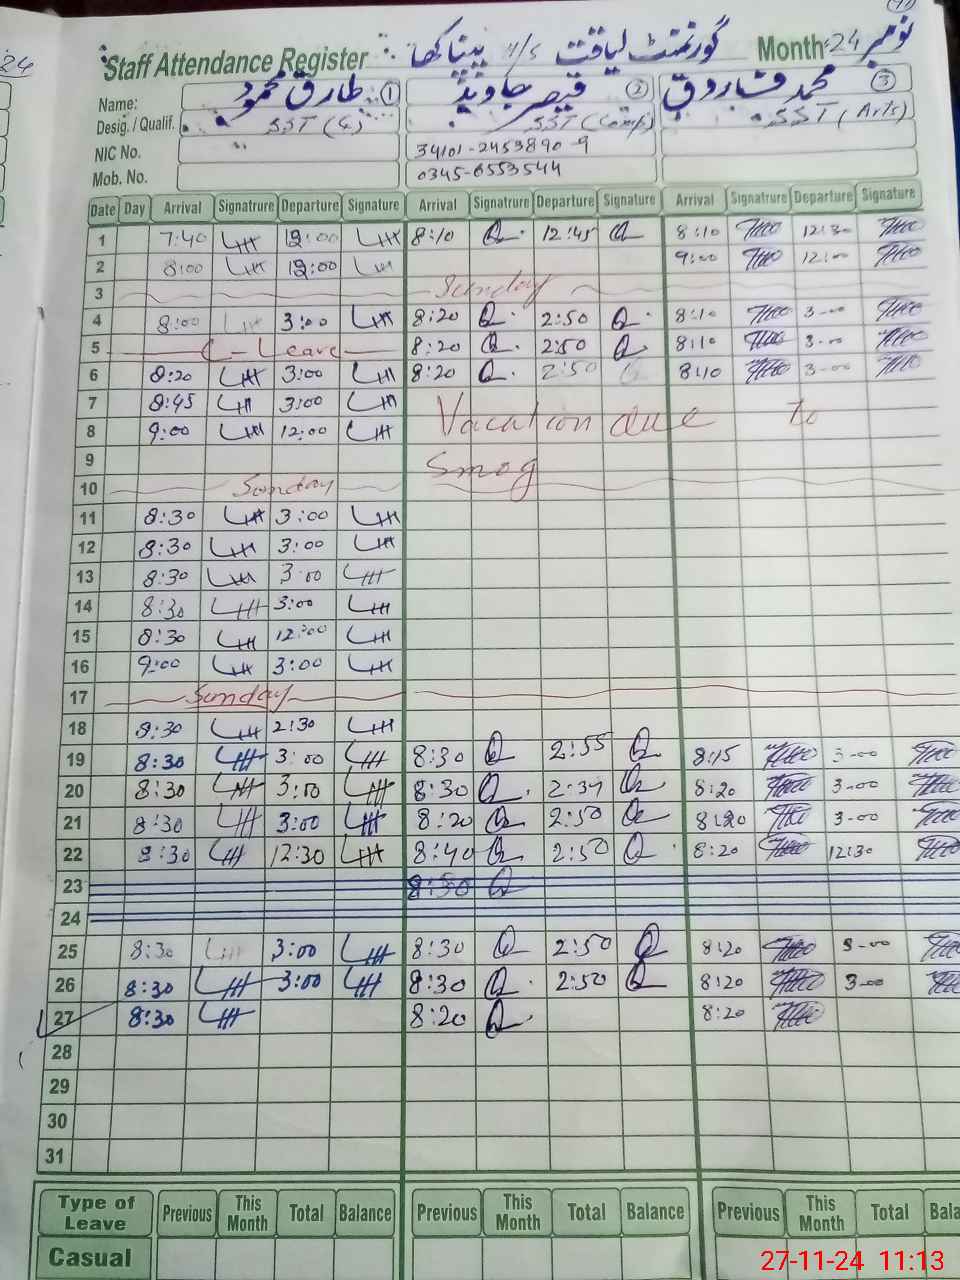 24
Staff Attendance Register گورنمنٹ لیاقت H/S پیناکھا Month: 24 نومبر
Name: طارق محمود ① قیصر جاوید ② محمد فاروق ③
Desig. / Qualif. SST (G) SST (Comp) SST (Arts)
NIC No. 34101-2453890-9
Mob. No. 0345-6553544
Date Day Arrival Signatrure Departure Signature Arrival Signatrure Departure Signature Arrival Signatrure Departure Signature
1 7:40 12:00 8:10 12:45 8:10 12:30
2 8:00 12:00 9:00 12:00
3 Sunday
4 8:00 3:00 8:20 2:50 8:10 3-00
5 C-Leave 8:20 2:50 8:10 3-00
6 8:20 3:00 8:20 2:50 8:10 3-00
7 8:45 3:00 Vacation due to
8 9:00 12:00
9 Smog
10 Sunday
11 8:30 3:00
12 8:30 3:00
13 8:30 3:00
14 8:30 3:00
15 8:30 12:00
16 9:00 3:00
17 Sunday
18 8:30 2:30
19 8:30 3:00 8:30 2:55 8:15 3-00
20 8:30 3:00 8:30 8:20 3-00
21 8:30 3:00 8:20 2:50 8:20 3-00
22 8:30 12:30 8:40 2:50 8:20 12:30
23 8:30
24
25 8:30 3:00 8:30 2:50 8:20 3-00
26 8:30 3:00 8:30 2:50 8:20 3-00
27 8:30 8:20 8:20
28
29
30
31
Type of Leave Previous This Month Total Balance Previous This Month Total Balance Previous This Month Total Bala
Casual
27-11-24 11:13